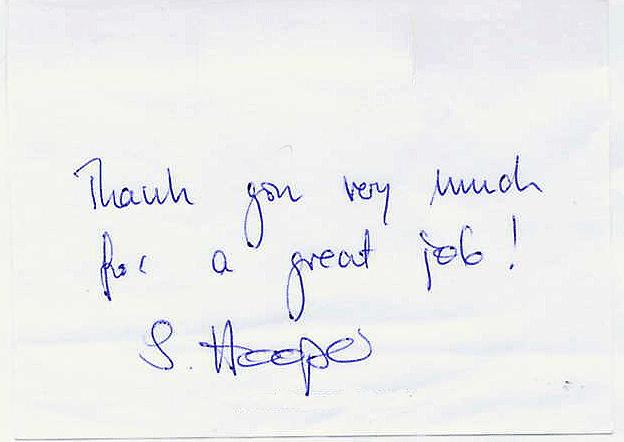 Thank you very much
for a great job!
S. Hooper